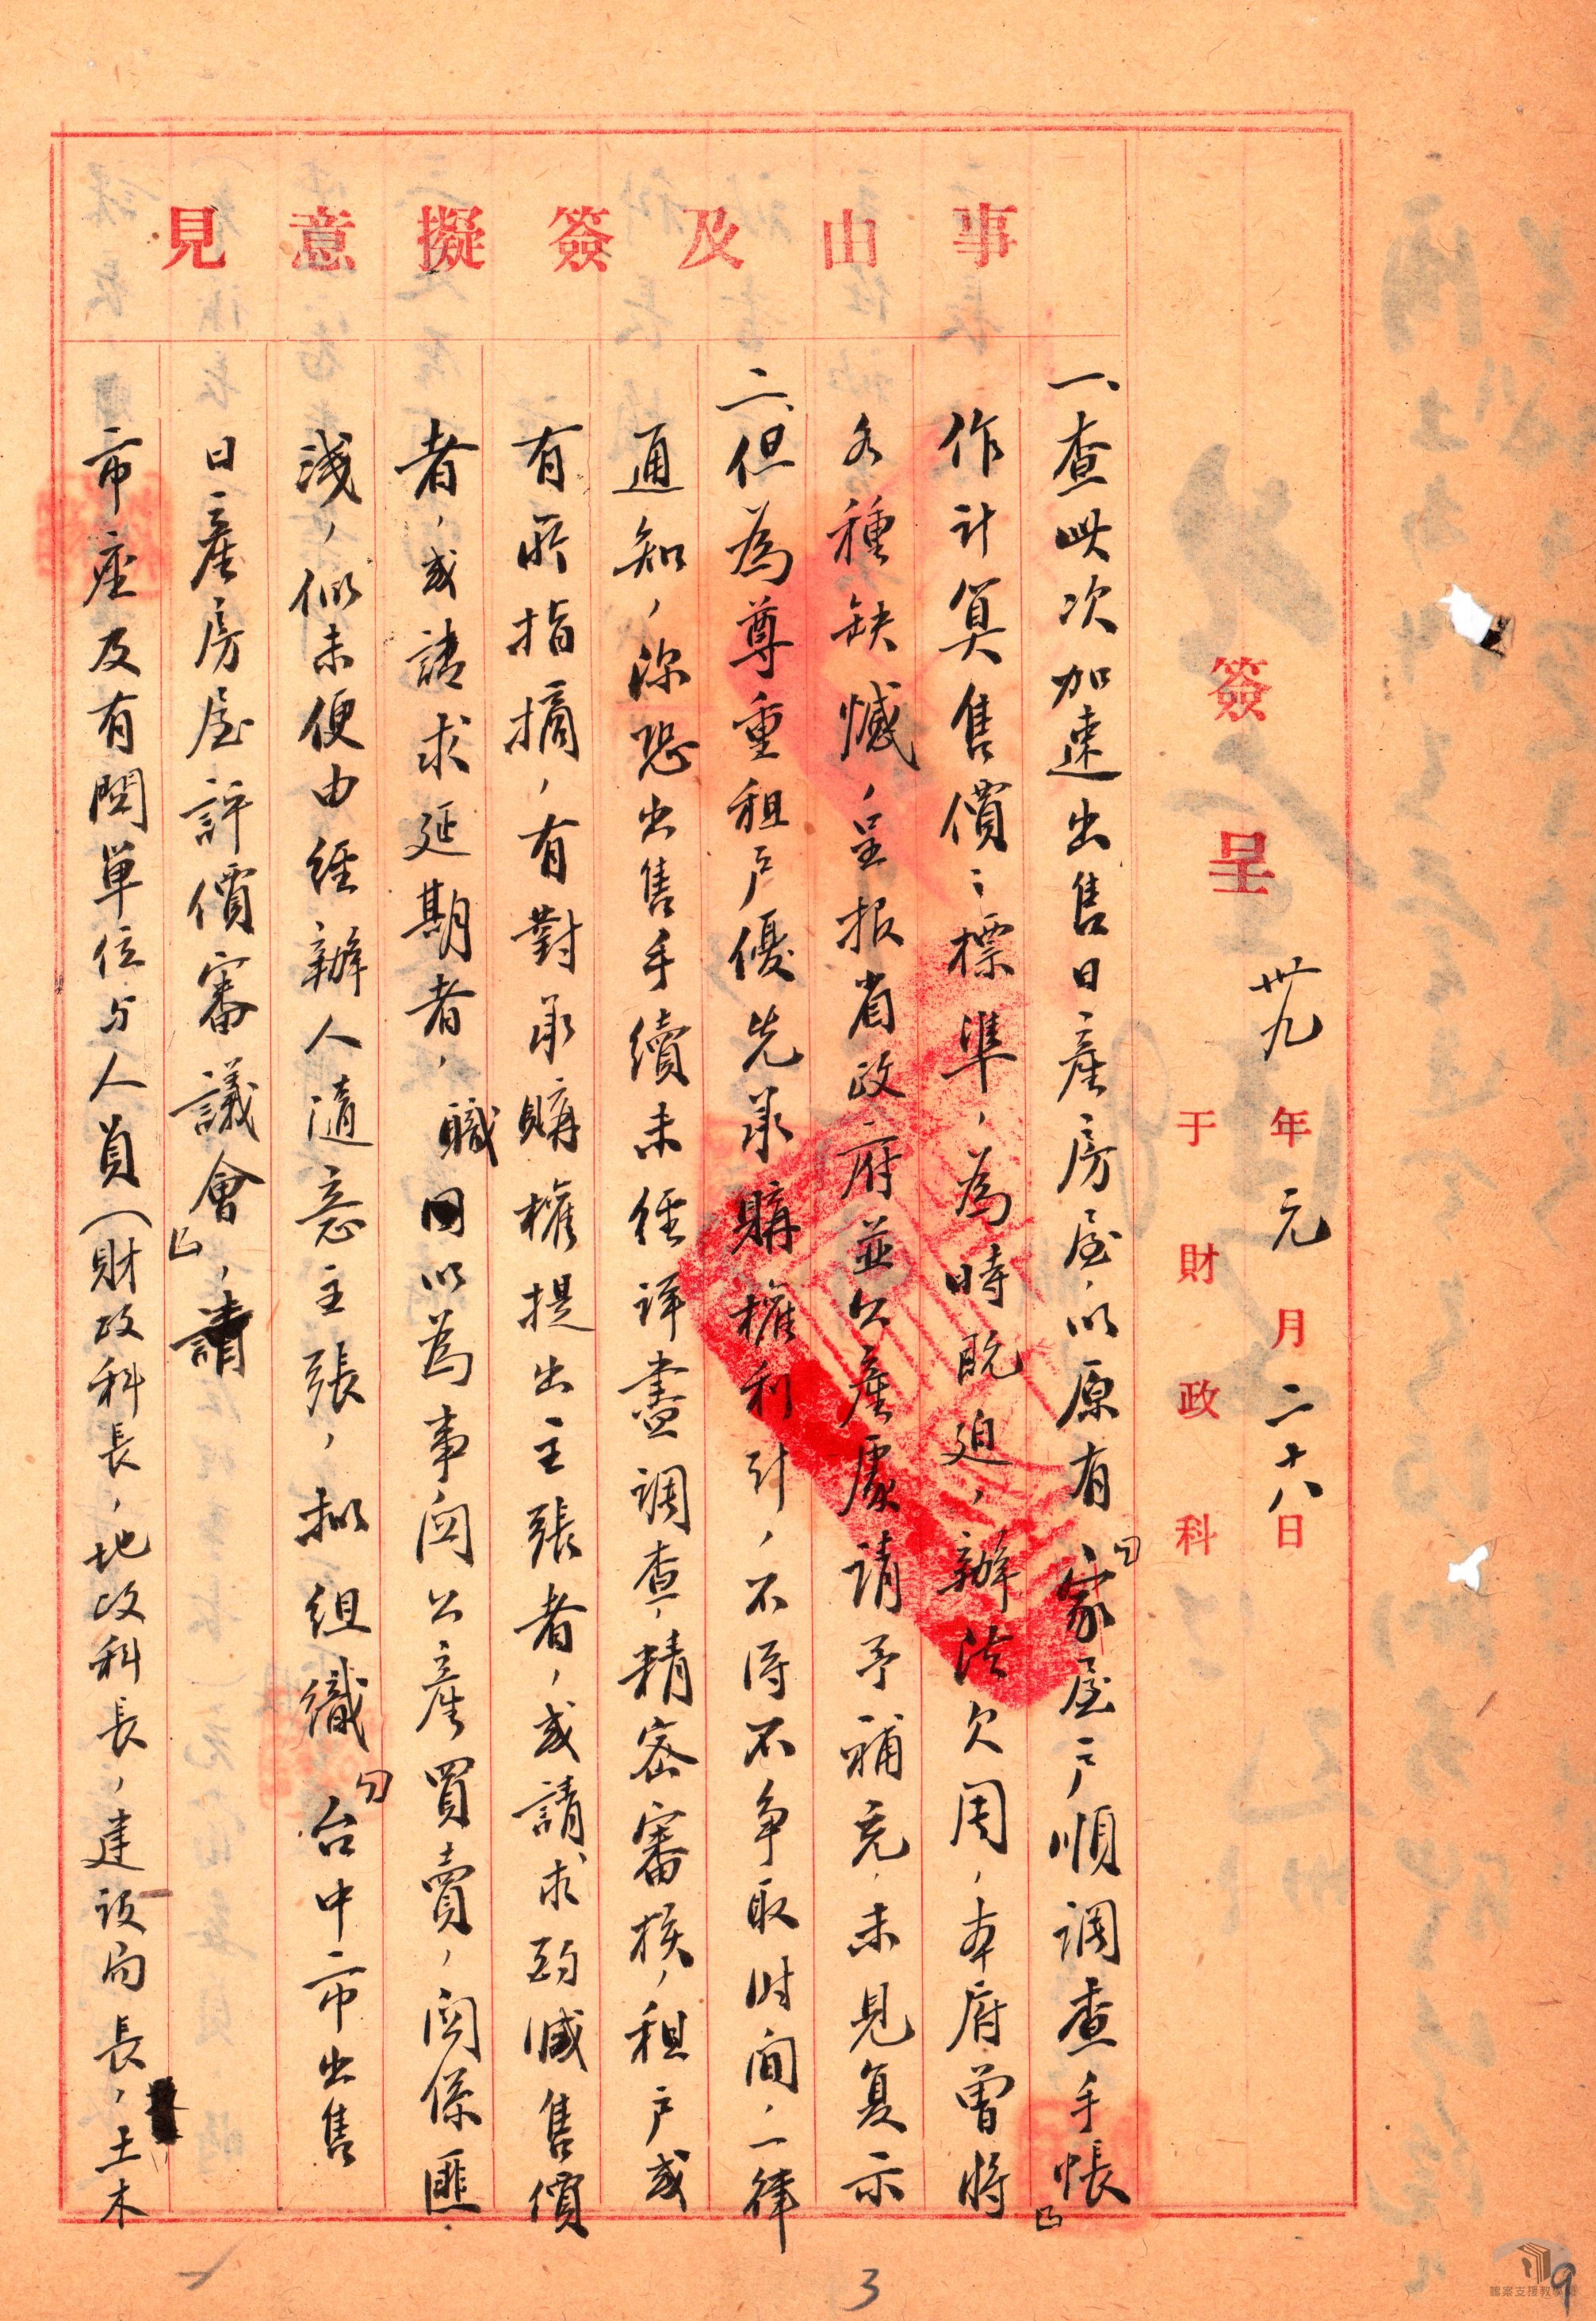 簽呈
卅九年元月二十八日
于財政科
事由及簽擬意見
一、查此次加速出售日產房屋,以原有「家屋戶順調查手帳」
作計算售價之標準,為時既迫,辦法欠周,本府曾將
各種缺憾,呈报省政府並公產處請予補充,未見复示
二、但為尊重租戶優先承購權利計,不得不争取时间,一律
通知,深恐出售手續未經详盡調查,精密審核,租戶或
有所指摘,有對承購權提出主張者,或請求酌減售價
者,或請求延期者,職 以為事関公產買賣,関係匪
淺,似未便由經辦人隨意主張,拟組織「台中市出售
日產房屋評價審議會」,請
市座及有関单位与人員(財政科長,地政科長,建設局長,土木
3
9
檔案支援教學網